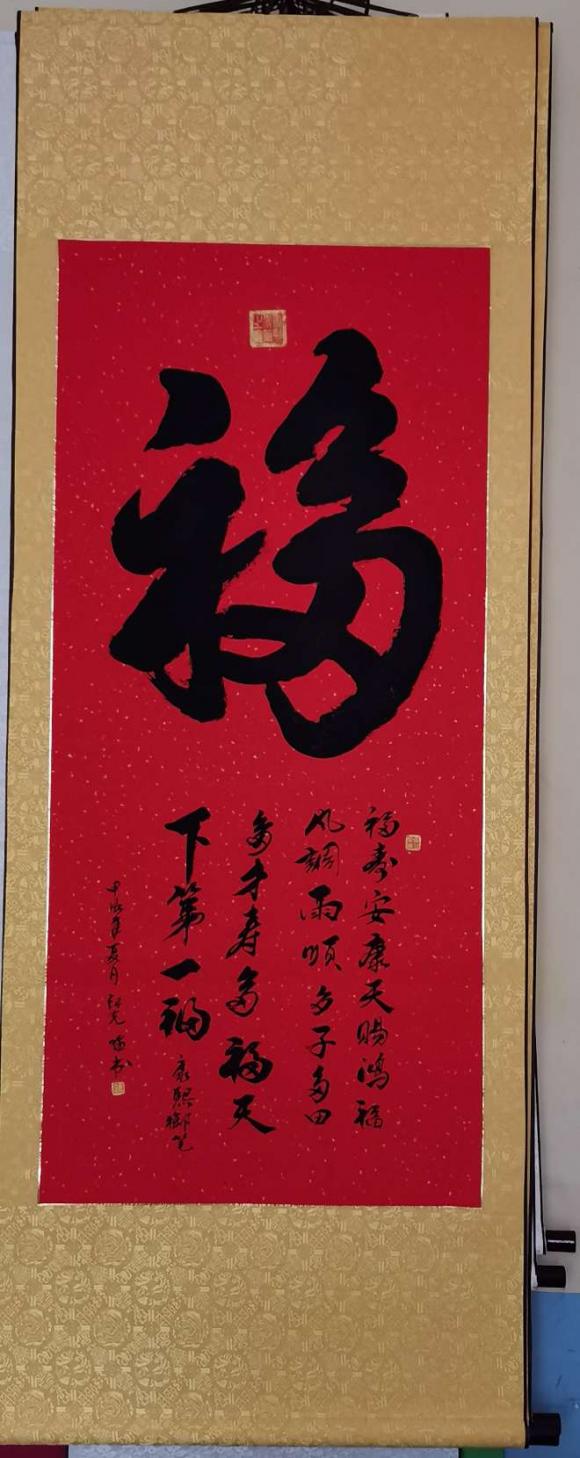 福
福寿安康天赐鸿福
风调雨顺多子多田
多才寿多福天
下第一福 康熙御笔
夏月
书